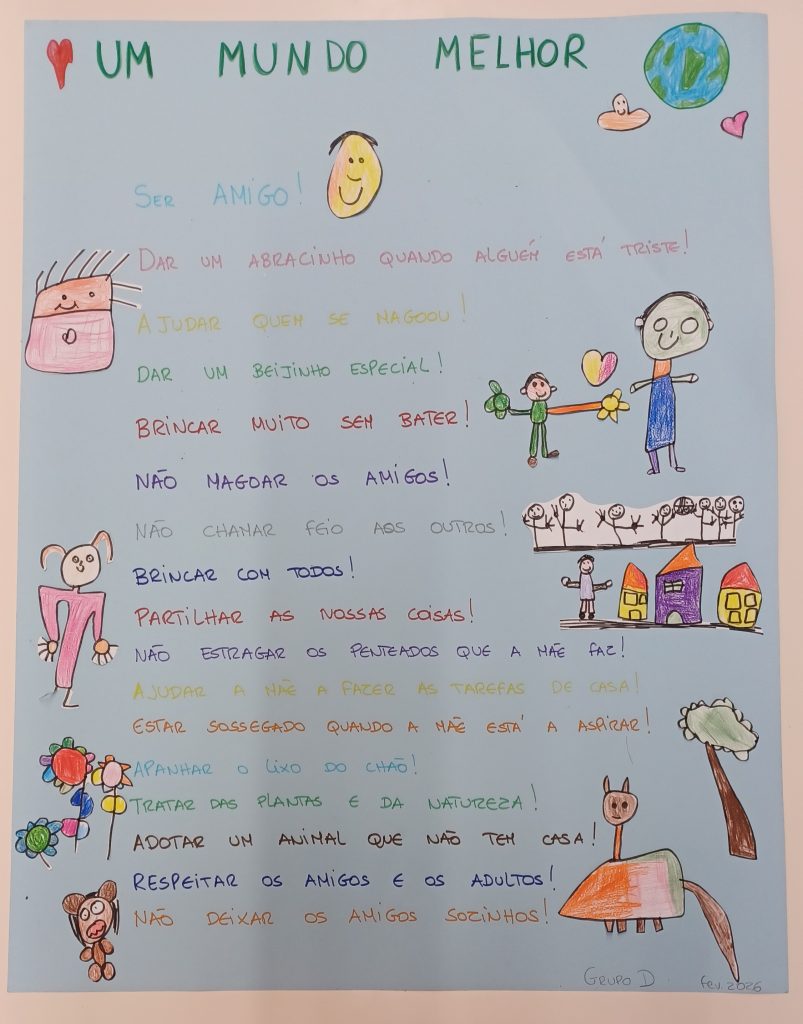 UM MUNDO MELHOR
SER AMIGO!
DAR UM ABRACINHO QUANDO ALGUÉM ESTÁ TRISTE!
AJUDAR QUEM SE MAGOOU!
DAR UM BEIJINHO ESPECIAL!
BRINCAR MUITO SEM BATER!
NÃO MAGOAR OS AMIGOS!
NÃO CHAMAR FEIO AOS OUTROS!
BRINCAR COM TODOS!
PARTILHAR AS NOSSAS COISAS!
NÃO ESTRAGAR OS PENTEADOS QUE A MÃE FAZ!
AJUDAR A MÃE A FAZER AS TAREFAS DE CASA!
ESTAR SOSSEGADO QUANDO A MÃE ESTÁ A ASPIRAR!
APANHAR O LIXO DO CHÃO!
TRATAR DAS PLANTAS E DA NATUREZA!
ADOTAR UM ANIMAL QUE NÃO TEM CASA!
RESPEITAR OS AMIGOS E OS ADULTOS!
NÃO DEIXAR OS AMIGOS SOZINHOS!
GRUPO D fev. 2026